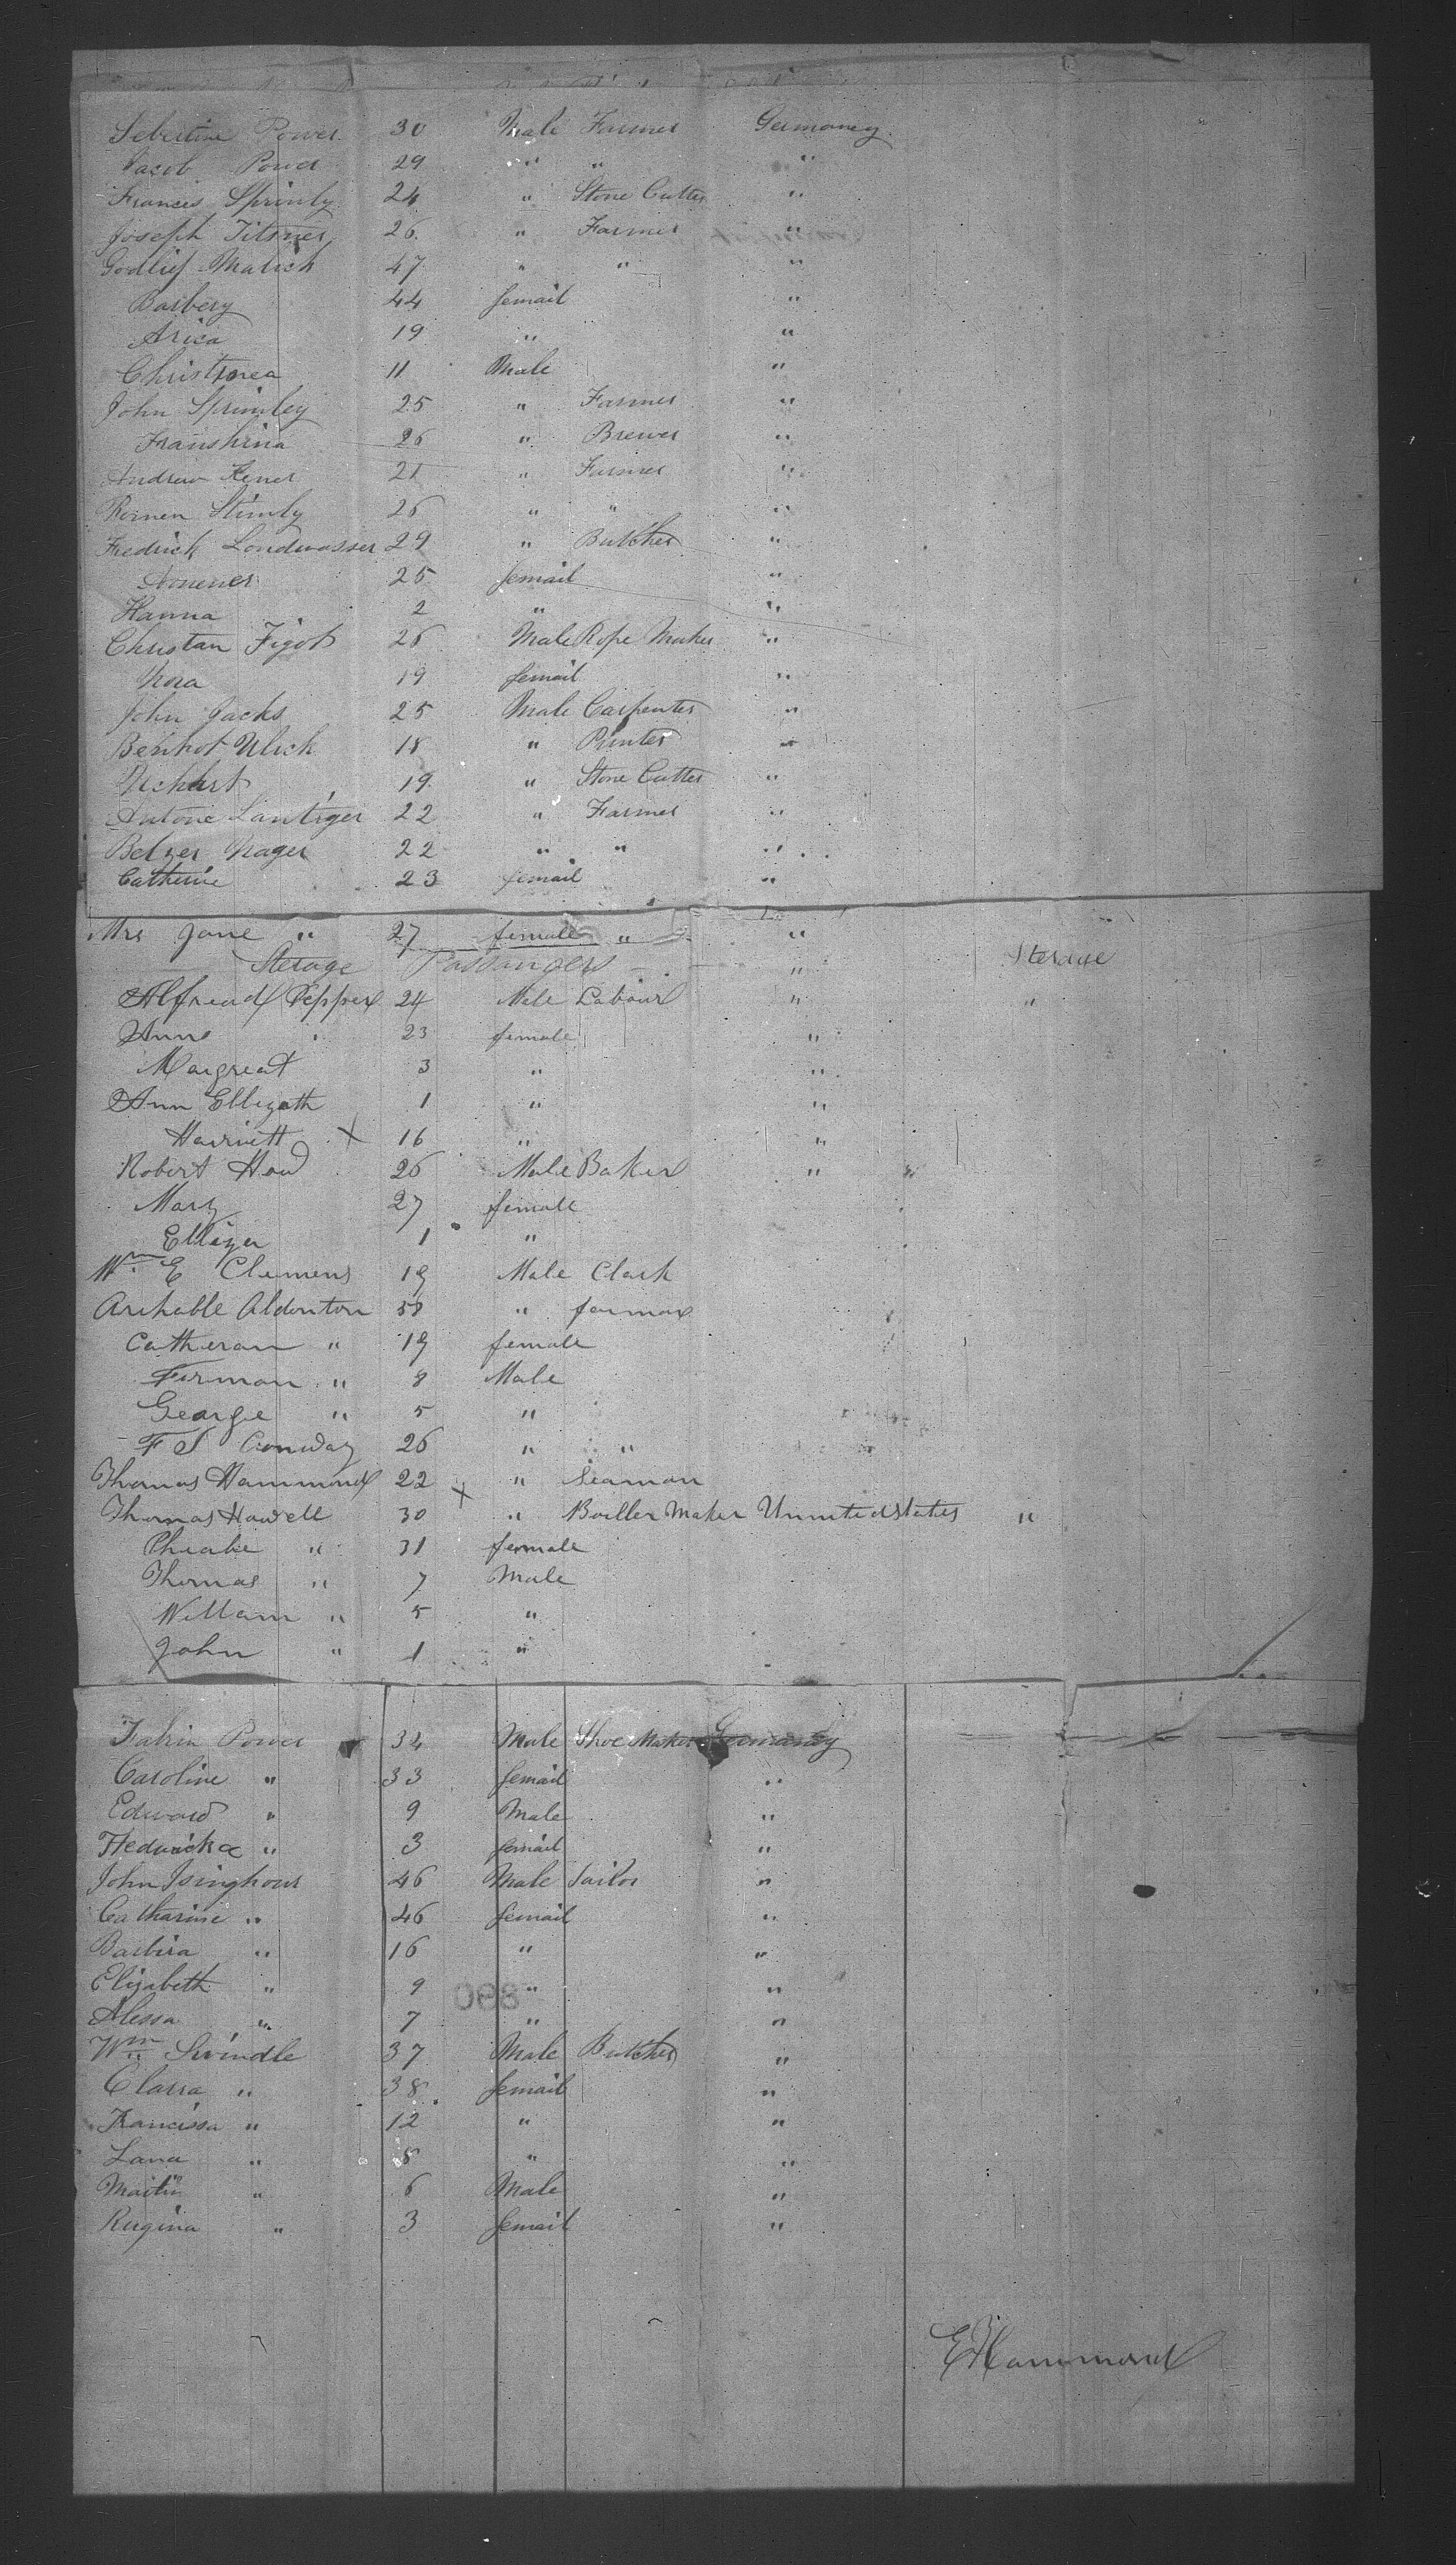 Sebertine Power 30 Male Farmer Germaney
Jacob Power 29 " " "
Frances Sprinly 24 " Stone Cutter "
Joseph Titsner 26 " Farmer "
Godlief Matich 47 " " "
Barbery 44 femail "
Arica 19 " "
Christinea 11 Male "
John Sprinley 25 " Farmer "
Franshina 26 " Brewer "
Andrew Kener 21 " Farmer "
Roinen Stimly 26 " " "
Fredrick Londwasser 29 " Butcher "
25 femail "
Hanna 2 " "
Christan Figot 26 Male Rope Maker "
Nora 19 femail "
John Jacks 25 Male Carpenter "
Benhot Ulich 18 " Printer "
19 " Stone Cutter "
Antone Lantiger 22 " Farmer "
Belzer Nager 22 " " "
Catherine 23 femail "
Mrs Jane " 27 female " "
Sterage Passangers " Sterage
Alfread Pepper 24 Male Labour " "
Anne 23 female "
Margreat 3 " "
Ann Ellizath 1 " "
Harriett X 16 " "
Robert How 26 Male Baker " "
Mary 27 female
Ellizer 1 "
Wm E Clemens 19 Male Clark
Arihable Aldonton 58 " farmar
Catheran " 19 female
Firman " 8 Male
Gearge " 5 "
F S Conway 26 " "
Thomas Hammond 22 X " Seaman
Thomas Howell 30 " Boiller Maker Unnitedstates "
Pheabe " 31 female
Thomas " 7 Male
William " 5 "
John " 1 "
Fabrin Power 34 Male Shoe Maker Germaney
Caroline " 33 femail "
Edward " 9 Male "
Hedwicka " 3 femail "
John Isinghour 46 Male Tailor "
Catharine " 46 femail "
Barbira " 16 " "
Elizabeth " 9 " "
Alessa " 7 " "
Wm Swindle 37 Male Butcher "
Clarra " 38 femail "
Francissa " 12 " "
Lana " 8 " "
Martin " 6 Male "
Rugina " 3 femail "
E Hammond